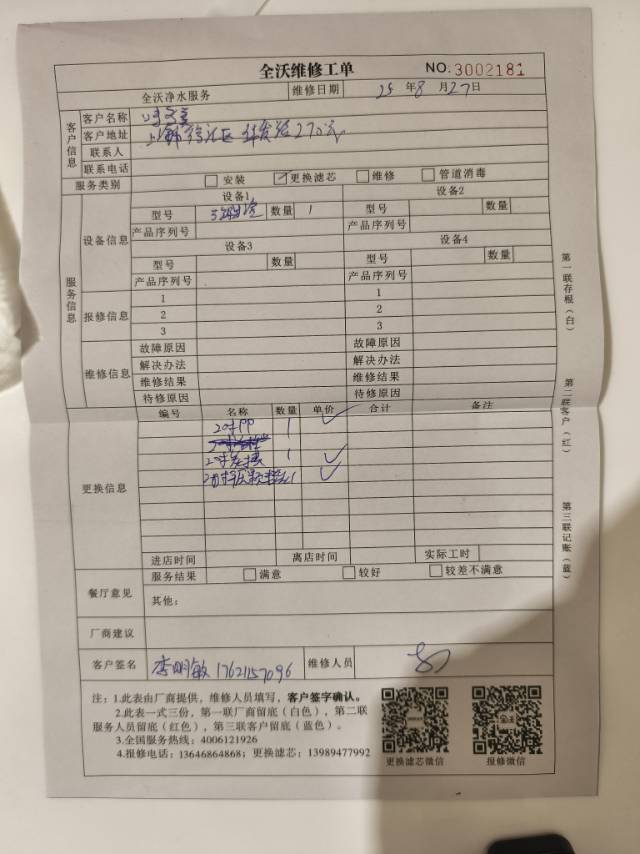 全沃维修工单 NO:3002181
全沃净水服务 维修日期 25 年 8 月 27 日
客户信息
客户名称
客户地址 上海 徐汇区 270号
联系人
联系电话
服务类别 安装 更换滤芯 维修 管道消毒
服务信息
设备信息
设备1 设备2
型号 数量 1 型号 数量
产品序列号 产品序列号
设备3 设备4
型号 数量 型号 数量
产品序列号 产品序列号
报修信息
1 1
2 2
3 3
维修信息
故障原因 故障原因
解决办法 解决办法
维修结果 维修结果
待修原因 待修原因
更换信息
编号 名称 数量 单价 合计 备注
20寸PP 1
1
1
进店时间 离店时间 实际工时
餐厅意见
服务结果 满意 较好 较差不满意
其他:
厂商建议
客户签名 李明敏 17621157096 维修人员
注：1.此表由厂商提供，维修人员填写，客户签字确认。
2.此表一式三份，第一联厂商留底（白色），第二联
服务人员留底（红色），第三联客户留底（蓝色）。
3.全国服务热线：4006121926
4.报修电话：13646864868；更换滤芯：13989477992
更换滤芯微信 报修微信
第一联存根（白）
第二联客户（红）
第三联记账（蓝）